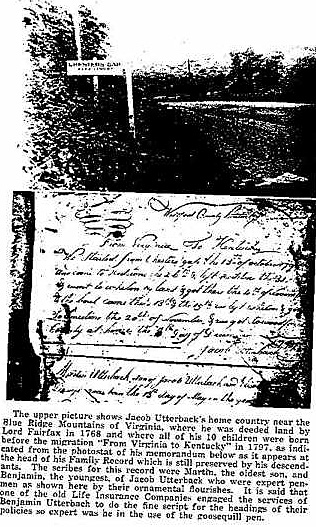 CHESTERS GAP
Woodford County Kentucky
From Virginia To Kentucky
We Started from Chesters gap the 13th of october 1797
and came to Redstone the 26th & left
went to whelon by land & got there the 4th of
the boat came there 13th & the 14th we left whelon & got
to the 20th of November & got to
County at the 4th Day of
Jacob
Martin Utterback, son of Jacob Utterback and
his was born the 15th day of May in the year
The upper picture shows Jacob Utterback's home country near the
Blue Ridge Mountains of Virginia, where he was deeded land by
Lord Fairfax in 1768 and where all of his 10 children were born
before the migration "From Virginia to Kentucky" in 1797, as indi-
cated from the photostat of his memorandum below as it appears at
the head of his Family Record which is still preserved by his descend-
ants. The scribes for this record were Martin, the oldest son, and
Benjamin, the youngest, of Jacob Utterback who were expert pen-
men as shown here by their ornamental flourishes. It is said that
one of the old Life Insurance Companies engaged the services of
Benjamin Utterback to do the fine script for the headings of their
policies so expert was he in the use of the goosequill pen.